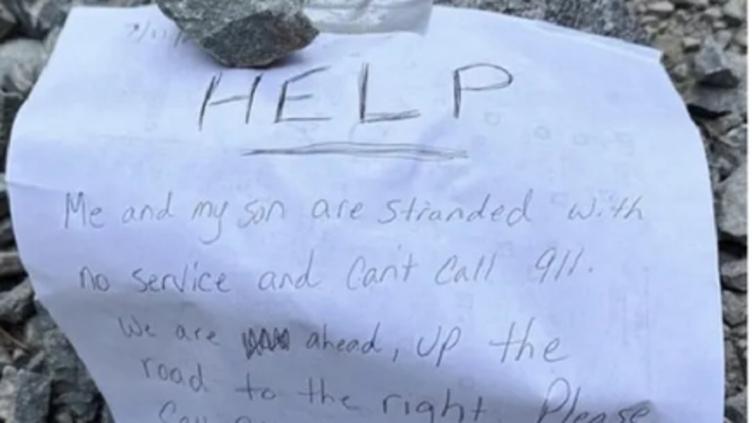 HELP
Me and my son are stranded with
no service and Can't Call 911.
We are ahead, up the
road to the right. Please